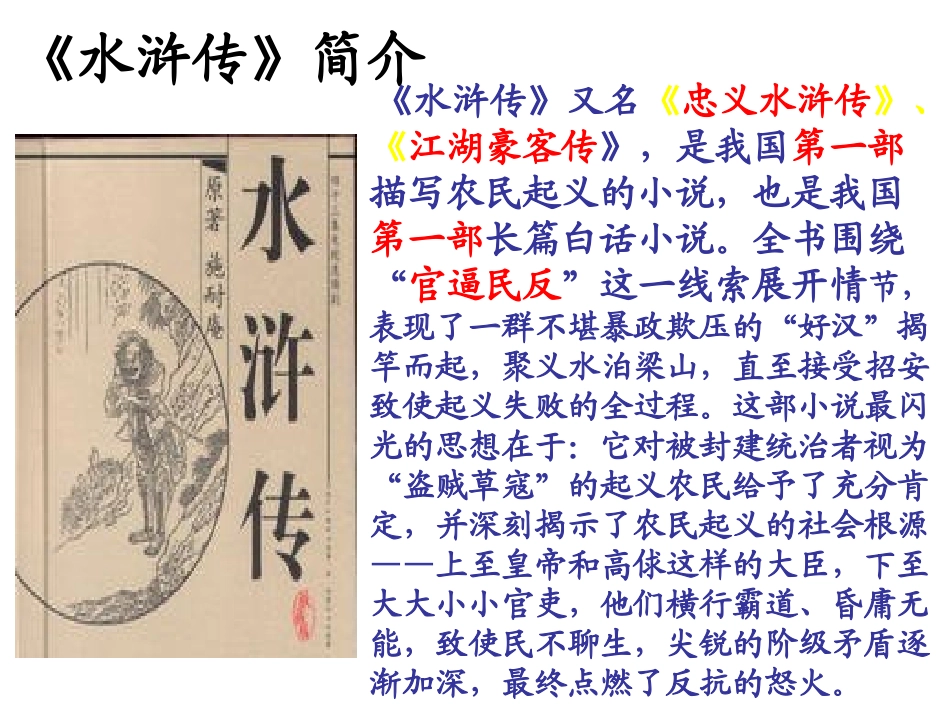 《水浒传》简介
《水浒传》又名《忠义水浒传》、
《江湖豪客传》，是我国第一部
描写农民起义的小说，也是我国
第一部长篇白话小说。全书围绕
“官逼民反”这一线索展开情节，
表现了一群不堪暴政欺压的“好汉”揭
竿而起，聚义水泊梁山，直至接受招安
致使起义失败的全过程。这部小说最闪
光的思想在于：它对被封建统治者视为
“盗贼草寇”的起义农民给予了充分肯
定，并深刻揭示了农民起义的社会根源
——上至皇帝和高俅这样的大臣，下至
大大小小官吏，他们横行霸道、昏庸无
能，致使民不聊生，尖锐的阶级矛盾逐
渐加深，最终点燃了反抗的怒火。
水浒传
原著 施耐庵